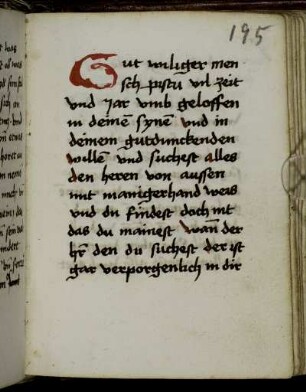 195
Gut williger men
sch pistu vil zeit
vnd Jar vmb geloffen
in deinē synē vnd in
deinem gutdunckenden
willen vnd suchest alles
den herren von aussen
mit manigerhand weis
vnd du findest doch nit
das du mainest wañ der
hr̄ den du suchest der ist
gar verporgenlich in dir